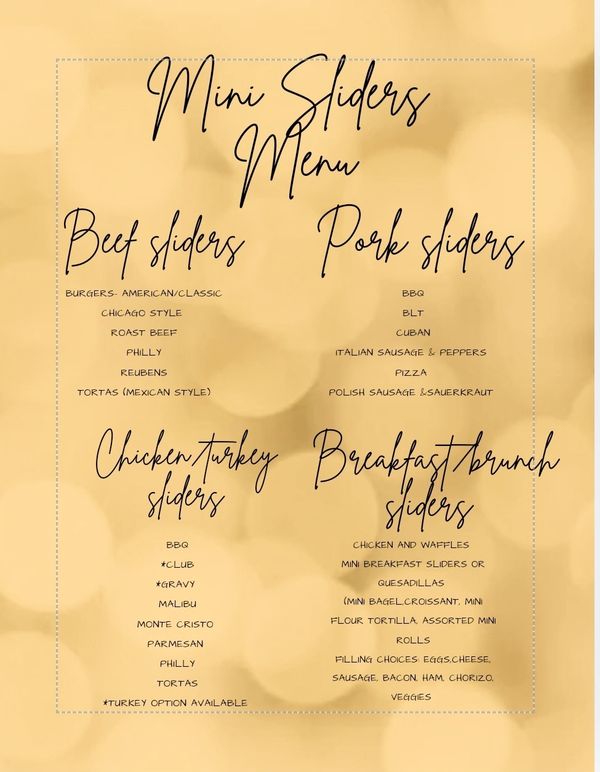 Mini Sliders
Menu
Beef sliders
BURGERS- AMERICAN/CLASSIC
CHICAGO STYLE
ROAST BEEF
PHILLY
REUBENS
TORTAS (MEXICAN STYLE)
Pork sliders
BBQ
BLT
CUBAN
ITALIAN SAUSAGE & PEPPERS
PIZZA
POLISH SAUSAGE &SAUERKRAUT
Chicken/turkey
sliders
BBQ
*CLUB
*GRAVY
MALIBU
MONTE CRISTO
PARMESAN
PHILLY
TORTAS
*TURKEY OPTION AVAILABLE
Breakfast/brunch
sliders
CHICKEN AND WAFFLES
MINI BREAKFAST SLIDERS OR
QUESADILLAS
(MINI BAGEL,CROISSANT, MINI
FLOUR TORTILLA, ASSORTED MINI
ROLLS
FILLING CHOICES: EGGS,CHEESE,
SAUSAGE, BACON, HAM, CHORIZO,
VEGGIES